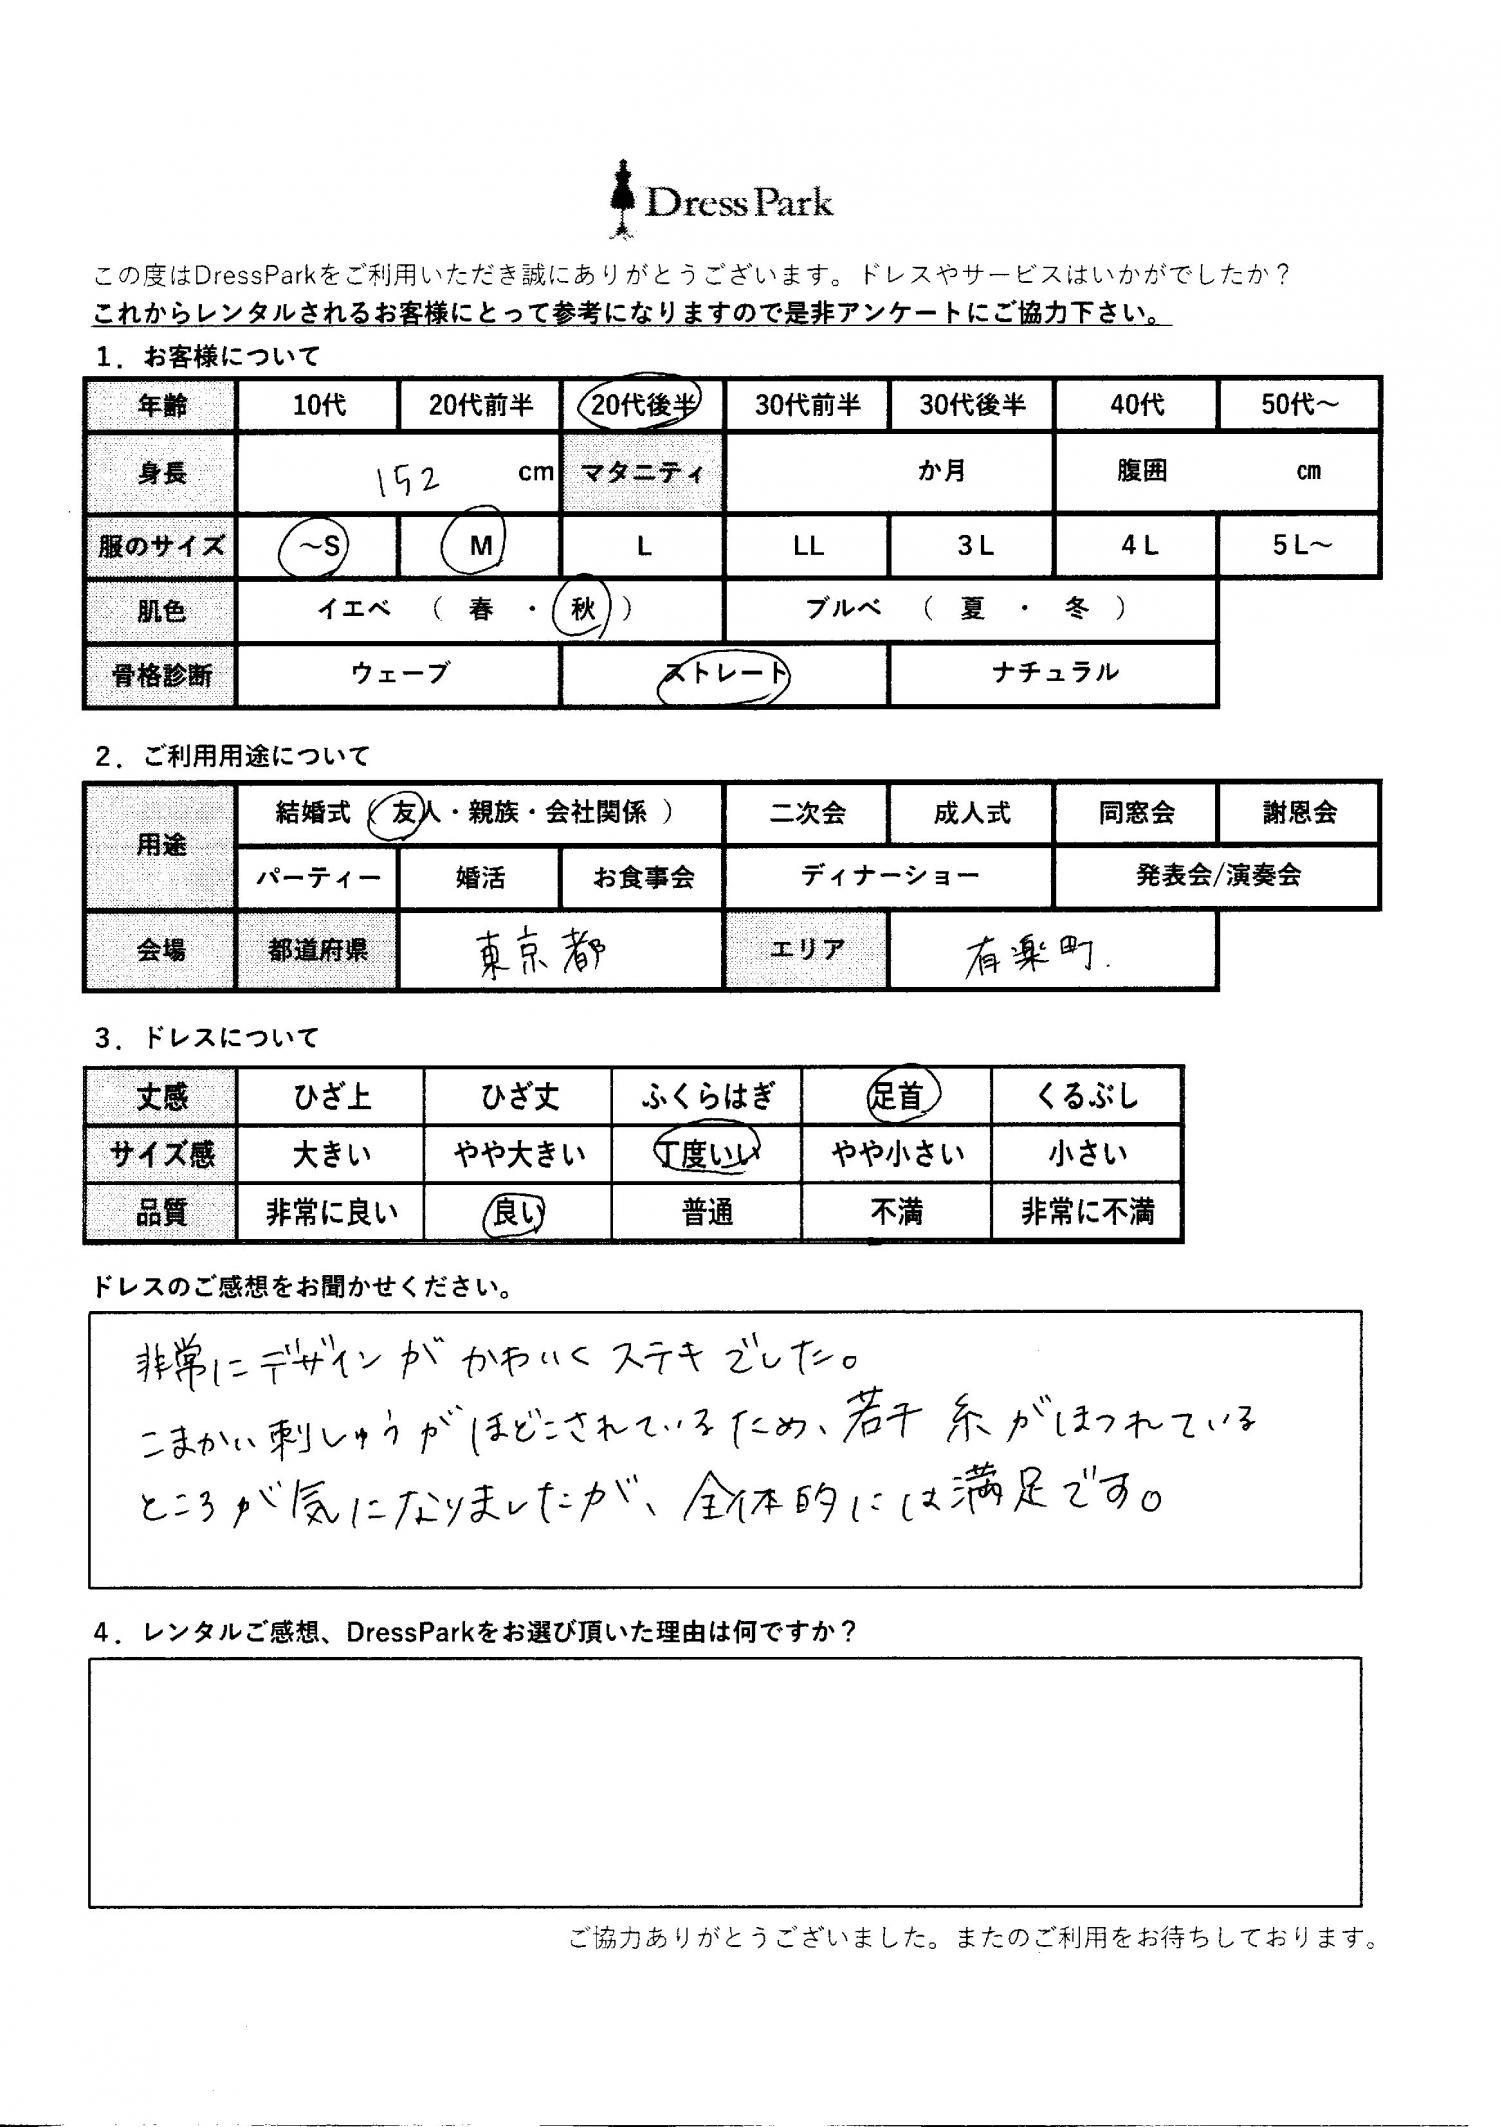 Dress Park
この度はDressParkをご利用いただき誠にありがとうございます。ドレスやサービスはいかがでしたか？
これからレンタルされるお客様にとって参考になりますので是非アンケートにご協力下さい。
1．お客様について
年齢 10代 20代前半 20代後半 30代前半 30代後半 40代 50代～
身長 152 cm マタニティ か月 腹囲 cm
服のサイズ ～S M L LL 3L 4L 5L～
肌色 イエベ （ 春 ・ 秋 ） ブルベ （ 夏 ・ 冬 ）
骨格診断 ウェーブ ストレート ナチュラル
2．ご利用用途について
用途 結婚式（ 友人・親族・会社関係 ） 二次会 成人式 同窓会 謝恩会
パーティー 婚活 お食事会 ディナーショー 発表会/演奏会
会場 都道府県 東京都 エリア 有楽町.
3．ドレスについて
丈感 ひざ上 ひざ丈 ふくらはぎ 足首 くるぶし
サイズ感 大きい やや大きい 丁度いい やや小さい 小さい
品質 非常に良い 良い 普通 不満 非常に不満
ドレスのご感想をお聞かせください。
非常にデザインがかわいくステキでした。
こまかい刺しゅうがほどこされているため、若干糸がほつれている
ところが気になりましたが、全体的には満足です。
4．レンタルご感想、DressParkをお選び頂いた理由は何ですか？
ご協力ありがとうございました。またのご利用をお待ちしております。